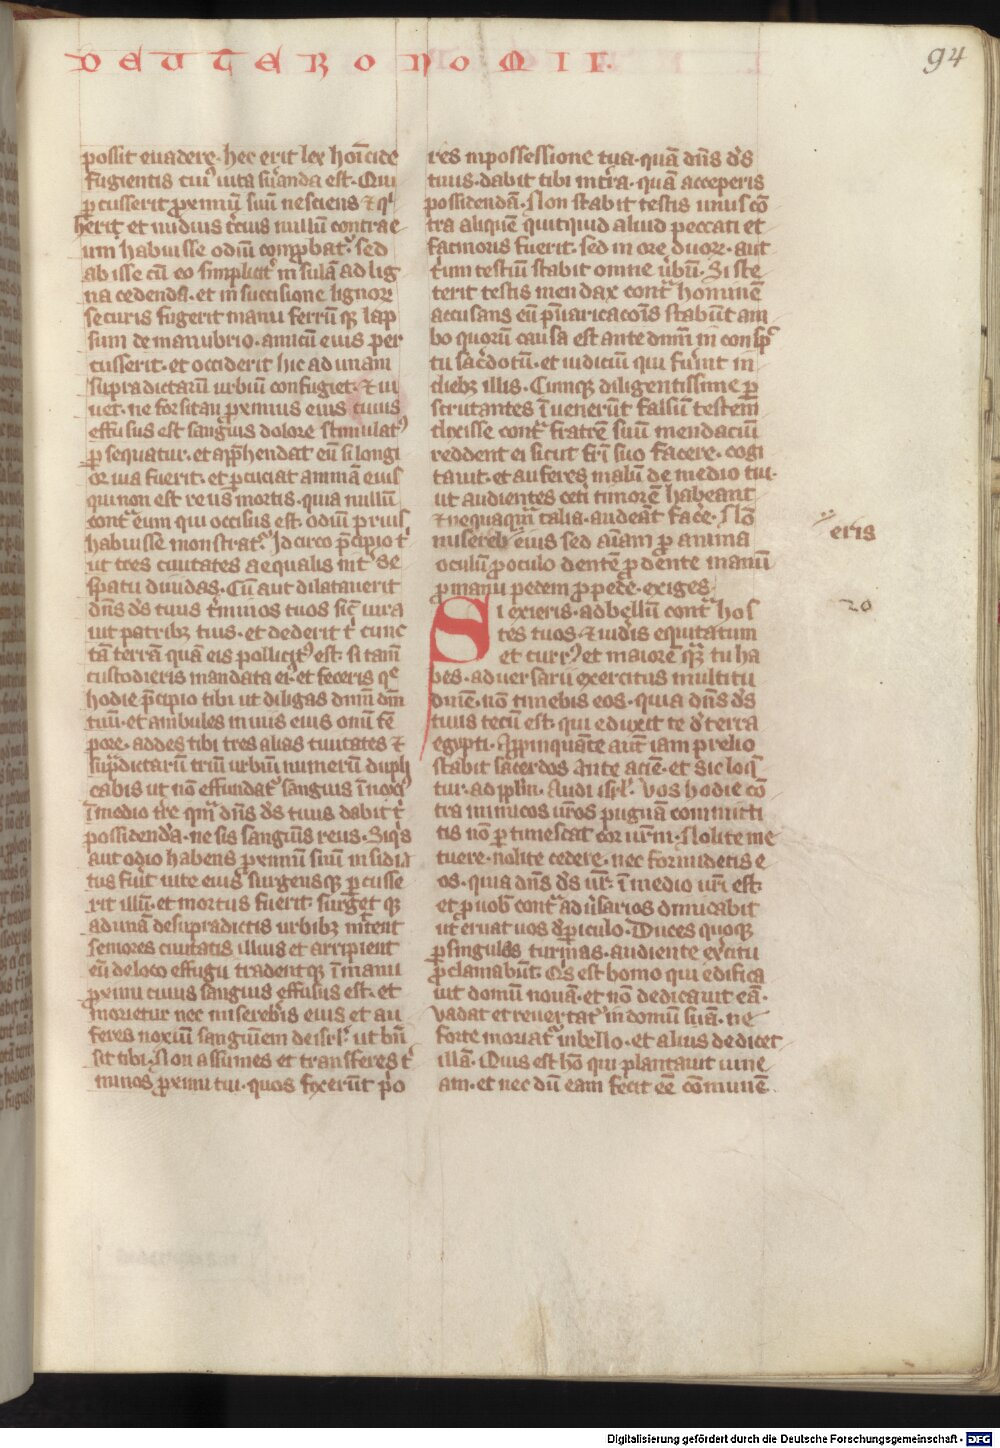 DEUTERONOMII.
94
possit euadere. hec erit lex homicide
fugientis cuiꝰ uita seruanda est. Qui
ꝑcusserit ꝓximū suū nesciens ⁊ qͥ
heri et nudius tercius nullū contra e
um habuisse odiū comꝓbatʳ. sed
abisse cū eo simpliciter in siluā ad lig
na cedenda. et in succisione lignoꝝ
securis fugerit manu ferrūqꝫ lap
sum de manubrio. amicū eius per
cusserit. et occiderit hic ad unam
supradictarū urbiū confugiet. ⁊ ui
uet. ne forsitan ꝓximus eius cuius
effusus est sanguis dolore stimulatꝰ
ꝑsequatur. et apprehendat eū si longi
or uia fuerit. et ꝑcuciat animā eius
qui non est reus mortis. quia nullū
contra eum qui occisus est. odiū prius
habuisse monstratʳ. Idcirco p̄cipio tͥ
ut tres ciuitates aequalis int̾ se
spatii diuidas. Cū aut dilatauerit
dn̄s ds̄ tuus t̾minos tuos sic̄ iura
uit patribꝫ tuis. et dederit tͥ cunc
tā terrā quā eis pollicitꝰ est. si tam̄
custodieris mandata eiꝰ. et feceris qͤ
hodie p̄cipio tibi ut diligas dnm̄ dm̄
tuū. et ambules in uiis eius om̄i tē
pore. addes tibi tres alias ciuitates ⁊
supͣdictarū triū urbiū numerū dupli
cabis ut non effundatʳ sanguis īnoxiꝰ
ī medio t̾re qͣm dn̄s ds̄ tuus dabit tͥ
possidendā. ne sis sanguīs reus. Siqͥs
aut odio habens ꝓximū suū insidia
tus fuit̾ uite eiusꝰ surgensqꝫ ꝑcusse
rit illū. et mortus fuerit. surget qꝫ
ad unā desupradictis urbibꝫ mittent
seniores ciuitatis illius et arripient
eū de loco effugii tradentqꝫ ī manu
ꝓximi cuius sanguis effusus est. et
morietur nec misereb̾is eius et au
feres noxiū sanguinem de isrl̄. ut bn̄
sit tibi. Non assumes et transferes t̾
minos ꝓximi tui. quos fixer̄t p̾o
res in possessione tua. quā dn̄s ds̄
tuus. dabit tibi in t̾ra. quā acceperis
possidendā. Non stabit testis unus cō
tra aliquē quitquid aliud peccati et
facinoris fuerit. sed in ore duoꝝ. aut
t̾um testiū stabit omne ūbū. Si ste
terit testis mendax contͣ hominē
accusans eū p̄uaricacōīs stabūt am
bo quorū causa est ante dnm̄ in conspͨ
tu sac̾dotū. et iudiciū qui fuīnt in
diebꝫ illis. Cumqꝫ diligentissime ꝑ
scrutantes īuenerūt falsū testem
dixisse contͣ fratrē suū mendaciū
reddent ei sicut fr̄i suo facere. cogi
tauit. et auferes malū de medio tui.
ut audientes cet̾i timorē habeant
⁊ nequaqͣm talia. audeāt face̾. Nō
misereb̾ eius sed aīam ꝓ anima
oculū ꝓ oculo dentē ꝓ dente manū
ꝓ manu pedem ꝓ pede. exiges.
eris
20
Si exieris. ad bellū contͣ hos
tes tuos. ⁊ uid̾is equitatum
et currꝰ et maiorē qͣꝫ tu ha
bes. aduersarii exercitus multitu
dinē. nō timebis eos. quia dn̄s ds̄
tuus tecū est. qui eduxit te de terra
egypti. Apꝓpinquāte aūt iam prelio
stabit sacerdos ante aciē. et sic loqͥ
tur. ad ppl̄m. Audi isrl̄. vos hodie cō
tra inimicos uros pugnā committi
tis nō ꝑtimescat cor ur̄m. Nolite me
tuere. nolite cedere. nec formidetis e
os. quia dn̄s ds̄ ur̄. ī medio ur̄i est.
et ꝓ uob̾ contͣ adūsarios dimicabit
ut eruat uos d̾ ꝑiculo. Duces quoqꝫ
ꝑ singulas turmas. audiente exc̾itu
ꝓclamabūt. Qͥs est homo qui edifica
uit domū nouā. et nō dedicauit eā.
vadat et reuertatʳ in domū suā. ne
forte moriatʳ in bello. et alius dedicet
illā. Quis est hō qui plantauit uine
am. et nec dū eam fecit eē cōmunē
Digitalisierung gefördert durch die Deutsche Forschungsgemeinschaft - DFG